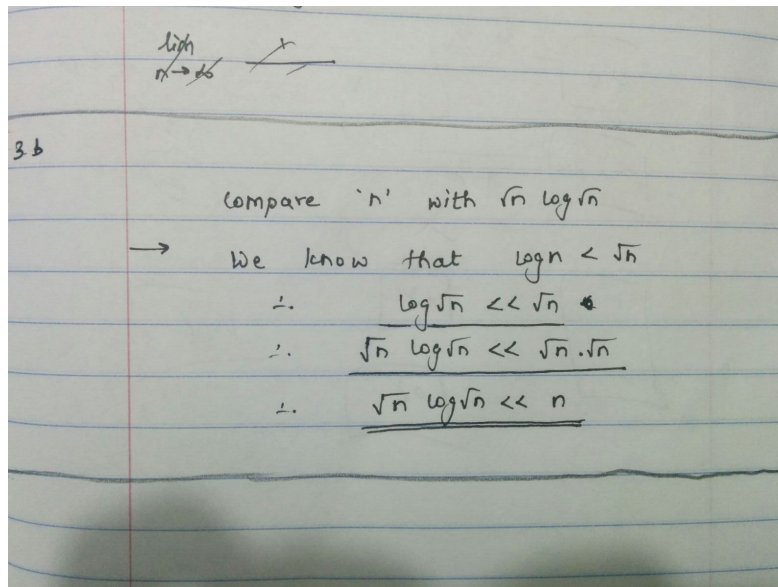 lim x
n→∞
3.b
Compare 'n' with √n log√n
→ We know that logn < √n
∴ log√n << √n
∴ √n log√n << √n.√n
∴ √n log√n << n